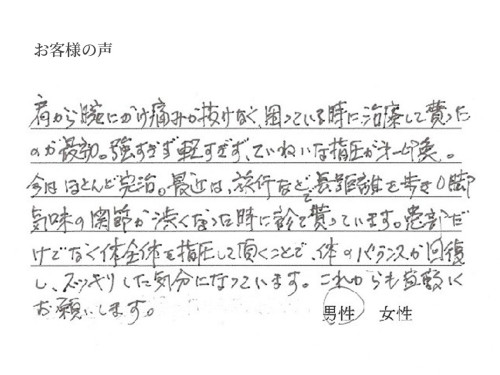 お客様の声
肩から腕にかけ痛みが抜けなく、困っている時に治療して貰った
のが最初。強すぎず軽すぎず、ていねいな指圧が第一印象。
今はほとんど完治。最近は、旅行などで長距離を歩きO脚
気味の関節が渋くなった時に診て貰っています。患部だ
けでなく体全体を指圧して頂くことで、体のバランスが回復
し、スッキリした気分になっています。これからも
お願いします。
男性 女性